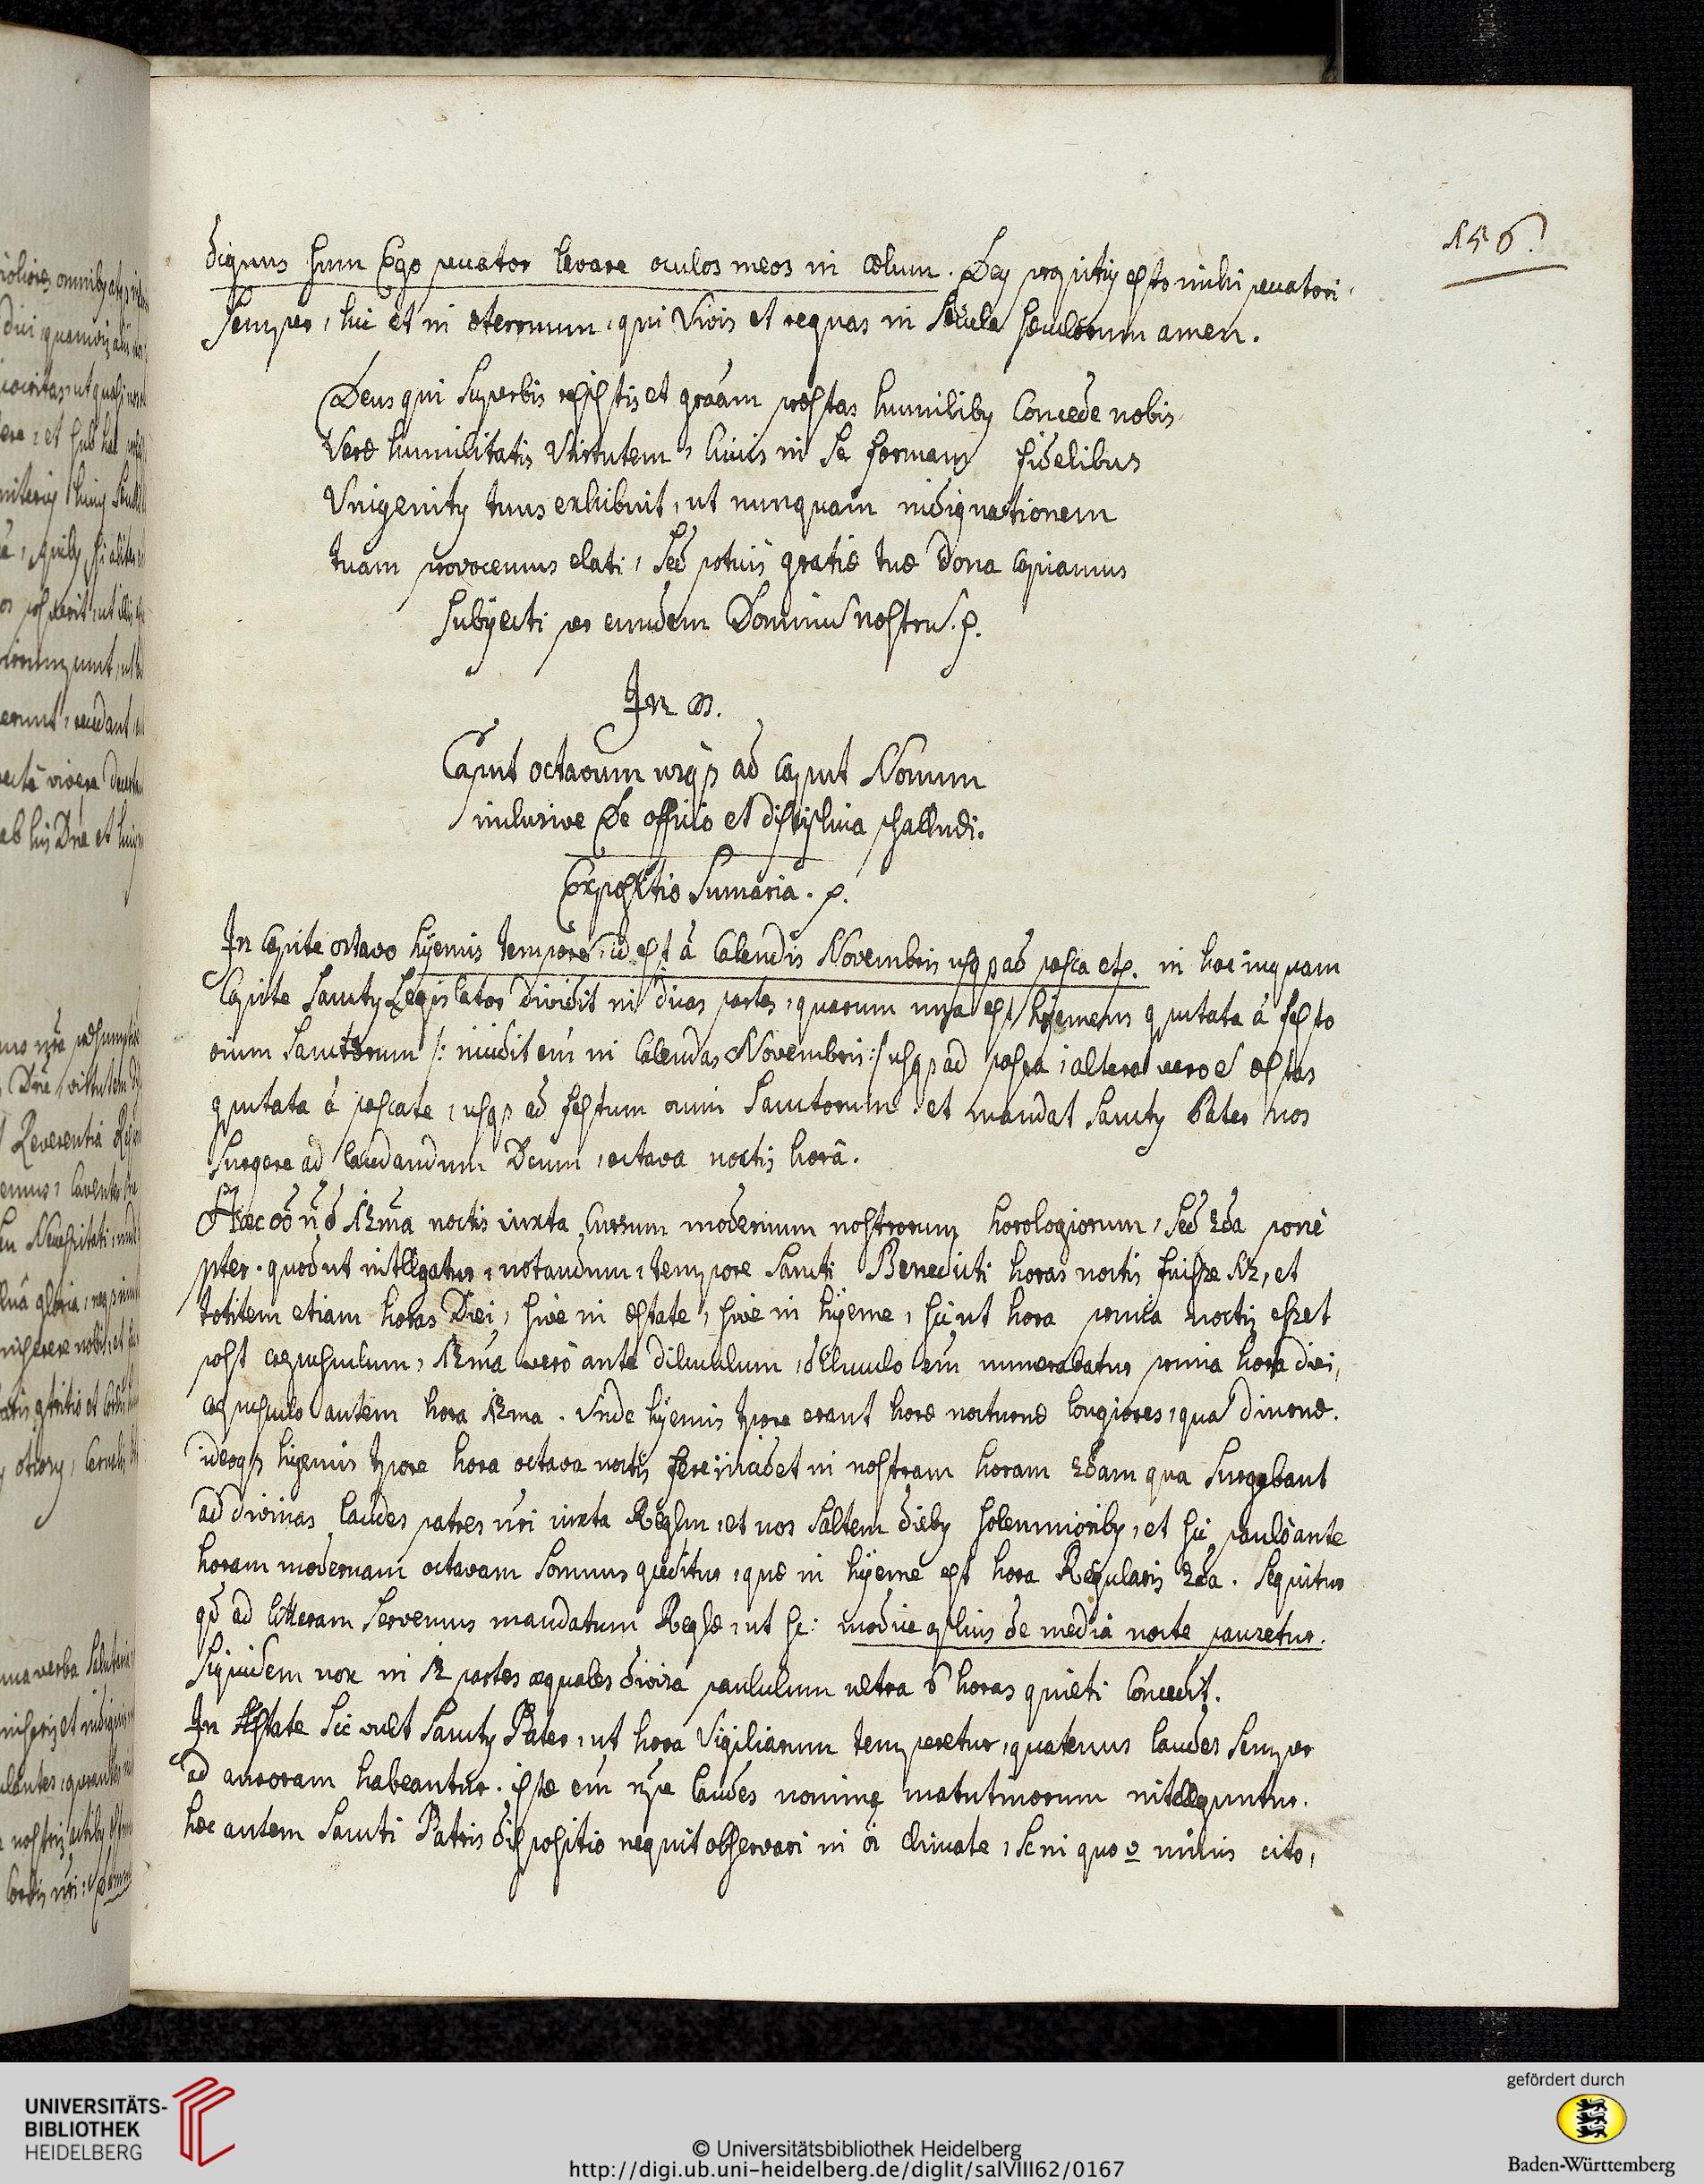 156.
dignus sum Ego peccator levare oculos meos in cœlum. Deus propitius esto mihi peccatori,
semper, hic et in æternum, qui vivis et regnas in sæcula sæculorum amen.
Deus qui superbis resistis et grãam præstas humilibus Concede nobis
veræ humilitatis virtutem, cuius in se formam fidelibus
Unigenitus tuus exhibuit, ut nunquam indignationem
tuam provocemus elati, sed potius gratiæ tuæ dona capiamus
subiecti per eundem Dominũ nostrũ. p.
In
Caput octavum usque ad caput Nonum
inclusive De officio et disciplina psallendi.
Expositio Sumaria. p.
In Capite octavo hÿemis tempore, id est à Calendis Novembris usque ad pasca etc. in hoc inquam
Capite Sanctus Legislator dividit in duas partes, quarum una est hÿemems computata à festo
omium Sanctorum /: incidit em̃ in Calendas Novembris :/ usque ad pasca, altera vero est æstas
computata à pascate, usque ad festum omiũ Sanctorum: et mandat Sanctus Pater nos
surgere ad laudandum Deum, octava noctis horâ.
Hæc 12ma noctis iuxta Cursum modernum nostrorum horologiorum, sed 2da
pter. quod ut intelligatur, notandum, tempore Sancti Benedicti horas noctis fuisse 12, et
totitem etiam horas Diei, sive in æstate, sive in hÿeme, sic ut hora prima noctis esset
post crepusculum, 12ma verò ante diluculum, diluculo em̃ numerabatur prima hora diei,
crepusculo autem hora 12ma. Unde hÿemis tpore erant horæ nocturnæ longiores, quã diurnæ.
ideoque hÿemis tpore hora octava noctis fere incidet in nostram horam 2dam qua surgebant
ad divinas laudes patres nri iuxta Reglm, et nos saltem diebus solennioribus, et sic paulò ante
horam modernam octavam somnus conceditur, quæ in hÿeme est hora Regularis 2da. Sequitur
qd ad litteram servemus mandatum Reglæ, ut sc: modice amplius de media nocte pausetur.
Siquidem nox in 12 partes æquales divisa paululum ultra 6 horas quieti Concedit.
In Æstate sic vult Sanctus Pater, ut hora Vigiliarum temperetur, quatenus laudes semper
ad auroram habeantur. ipsæ em̃ laudes nomine matutinorum intelliguntur.
hæc autem Sancti Patris dispositio nequit observari in oi climate, sc in quo minus cito,
UNIVERSITÄTS-
BIBLIOTHEK
HEIDELBERG
© Universitätsbibliothek Heidelberg
http://digi.ub.uni-heidelberg.de/diglit/salVIII62/0167
gefördert durch
Baden-Württemberg